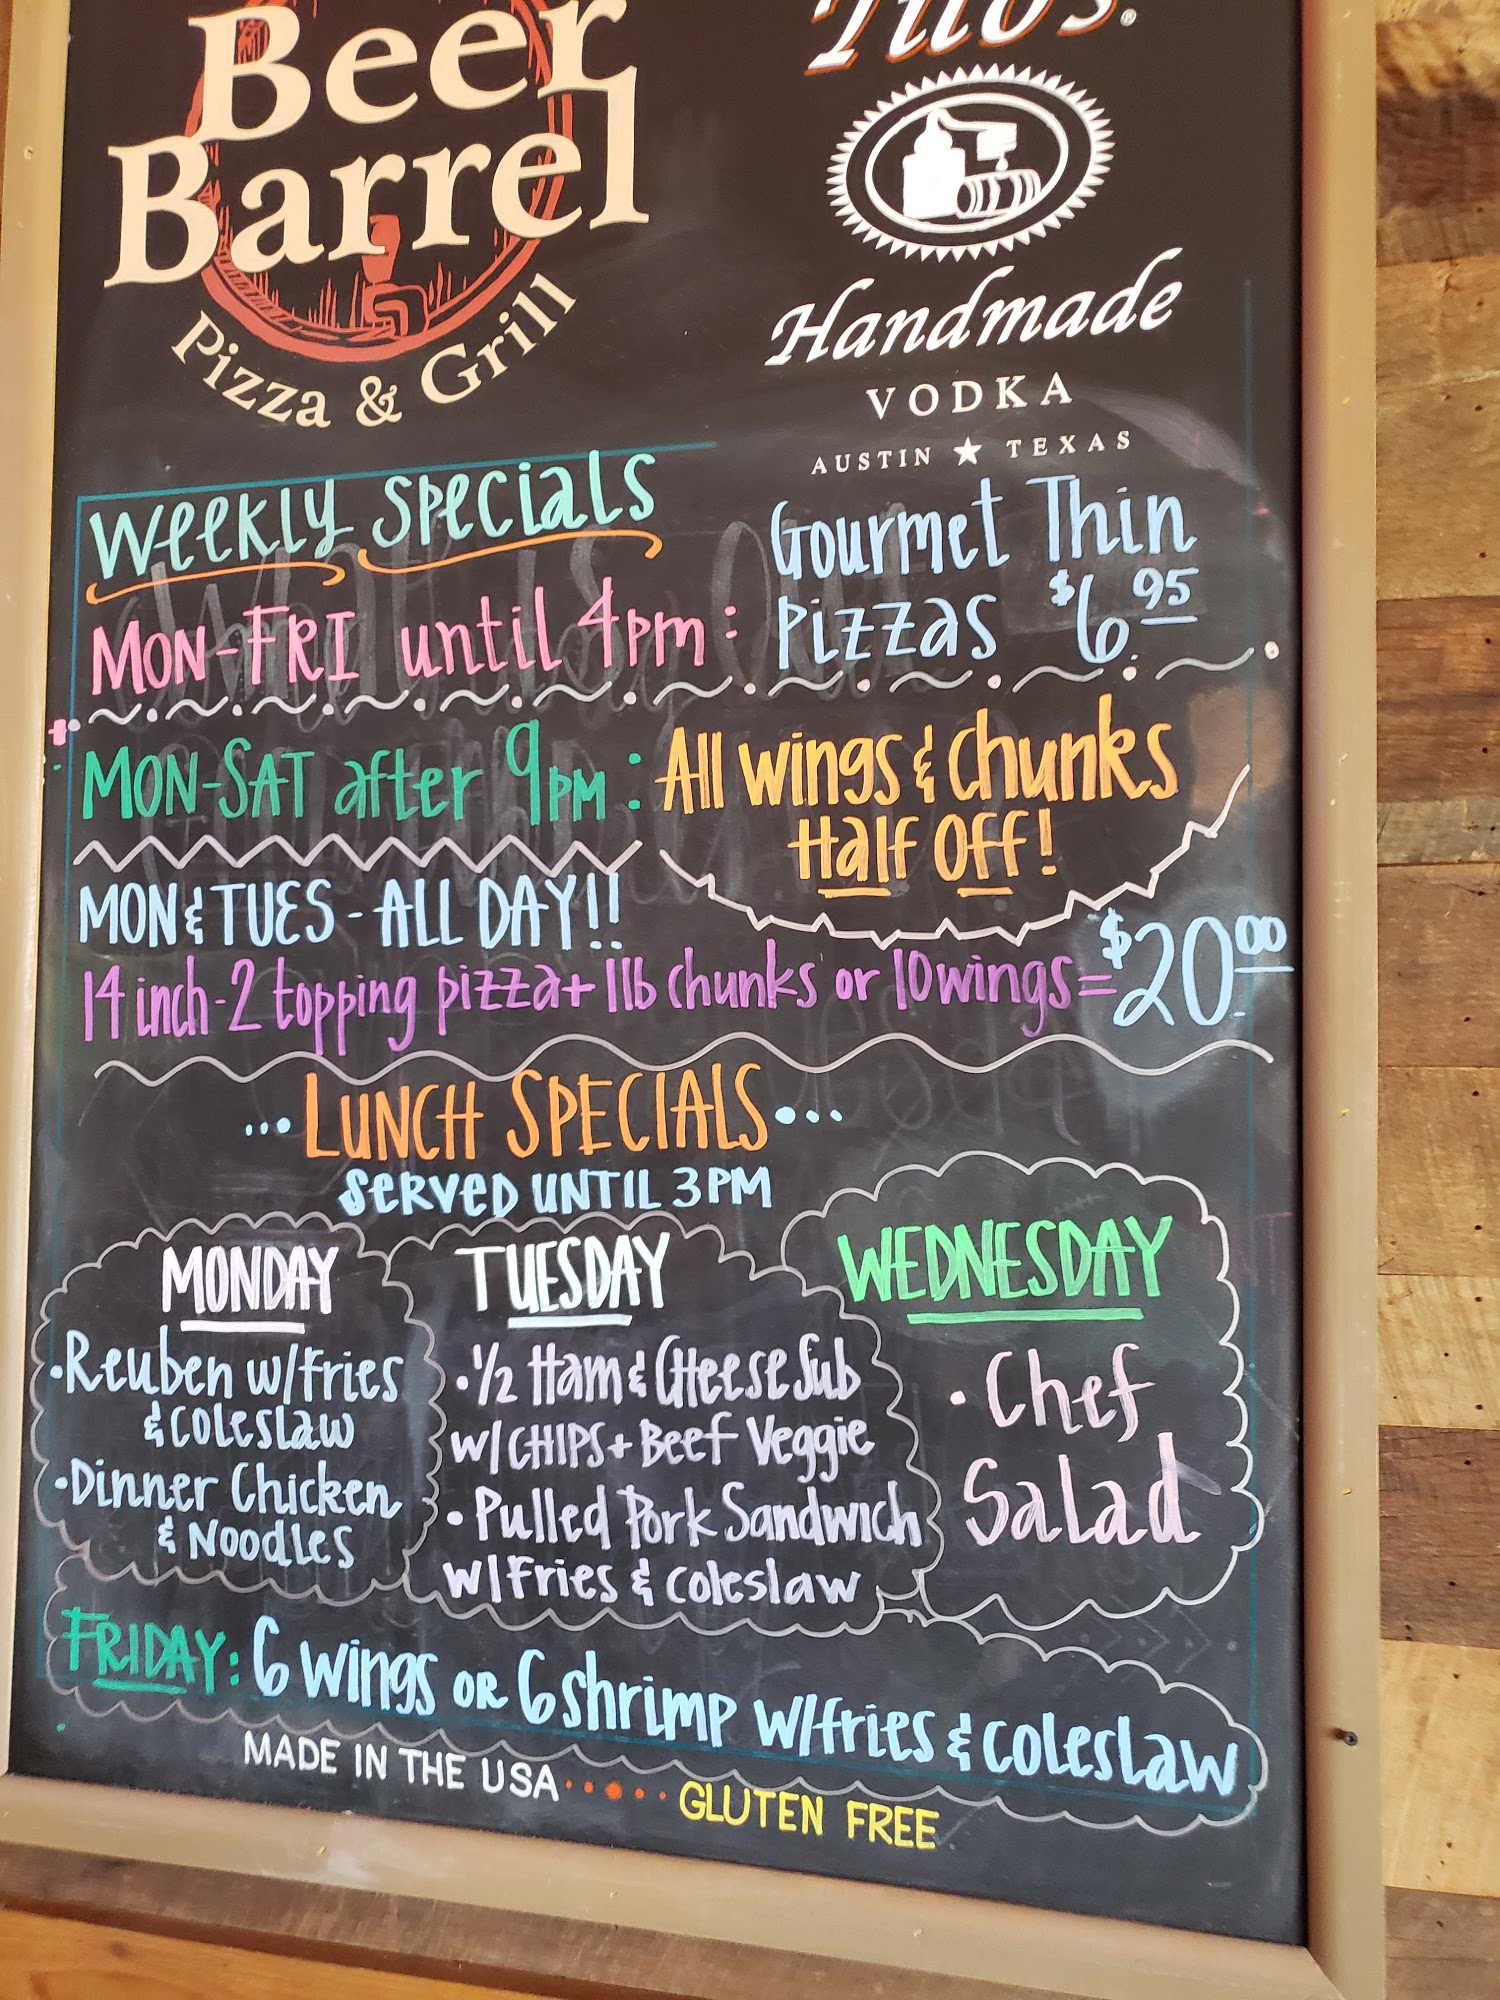 Beer
Barrel
Pizza & Grill
Tito's®
Handmade
VODKA
AUSTIN ★ TEXAS
Weekly Specials
MON-FRI until 4pm: Gourmet Thin
Pizzas $6.95
MON-SAT after 9PM: All wings & chunks
Half Off!
MON & TUES - ALL DAY!!
14 inch-2 topping pizza + 1lb chunks or 10 wings = $20.00
...LUNCH SPECIALS...
SERVED UNTIL 3PM
MONDAY
•Reuben w/Fries
& Coleslaw
•Dinner Chicken
& Noodles
TUESDAY
•1/2 Ham & Cheese Sub
w/ CHIPS + Beef Veggie
•Pulled Pork Sandwich
w/Fries & coleslaw
WEDNESDAY
•Chef
Salad
FRIDAY: 6 wings OR 6 shrimp w/fries & coleslaw
MADE IN THE USA ..... GLUTEN FREE